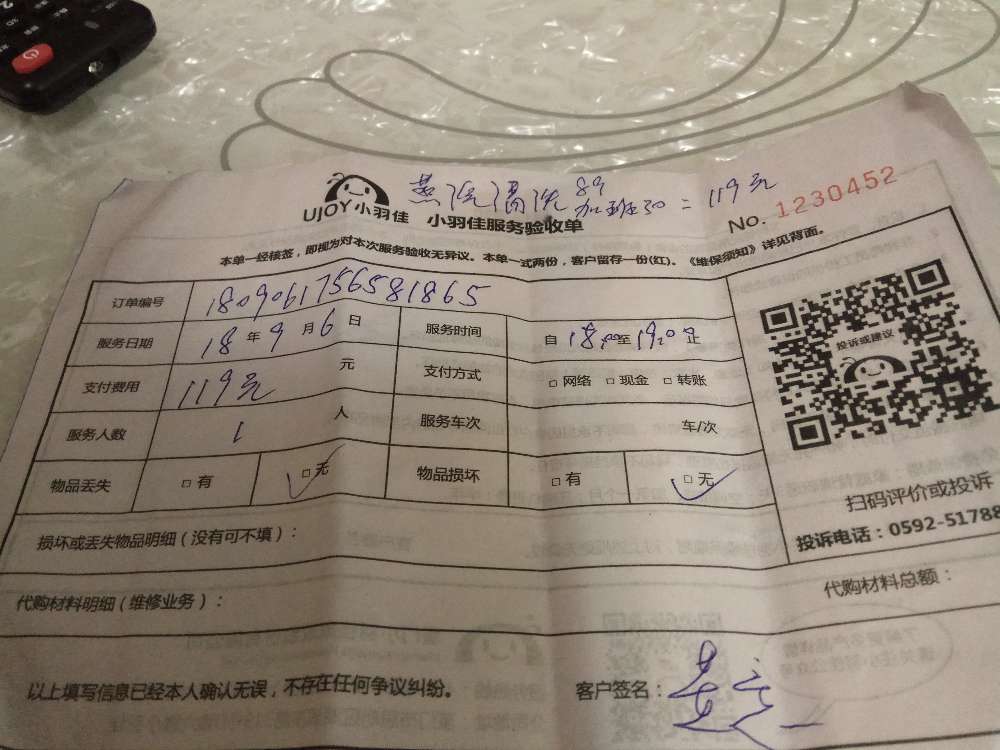 蒸汽清洗 89
加班30 = 119元
UJOY 小羽佳 小羽佳服务验收单
No. 1230452
本单一经核签，即视为对本次服务验收无异议。本单一式两份，客户留存一份(红)。《维保须知》详见背面。
订单编号 1809061756581865
服务日期 18 年 9 月 6 日 服务时间 自 18:00 至 19:00 止
支付费用 119元 元 支付方式 □ 网络 □ 现金 □ 转账
服务人数 1 人 服务车次 车/次
物品丢失 □ 有 □ 无 物品损坏 □ 有 □ 无
投诉或建议
扫码评价或投诉
投诉电话：0592-51788
损坏或丢失物品明细（没有可不填）：
代购材料明细（维修业务）：
代购材料总额：
以上填写信息已经本人确认无误，不存在任何争议纠纷。
客户签名：